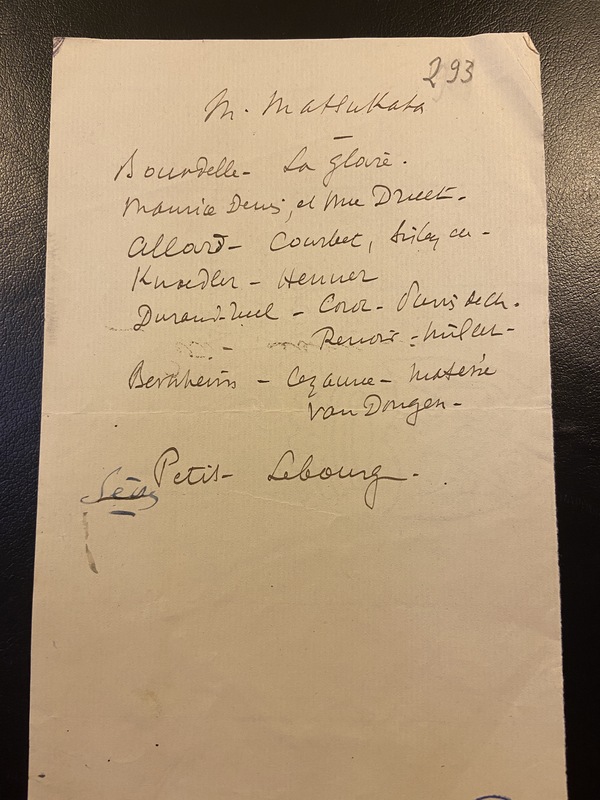 293
M. Matsukata
Bourdelle - La gloire.
Maurice Denis, et Mme Druet -
Allard - Courbet, Sisley
Knoedler - Henner
Durand-Ruel - Corot - Puvis de Ch.
Renoir -
Bernheim - Cezanne - Matisse
Van Dongen -
Petit - Lebourg -